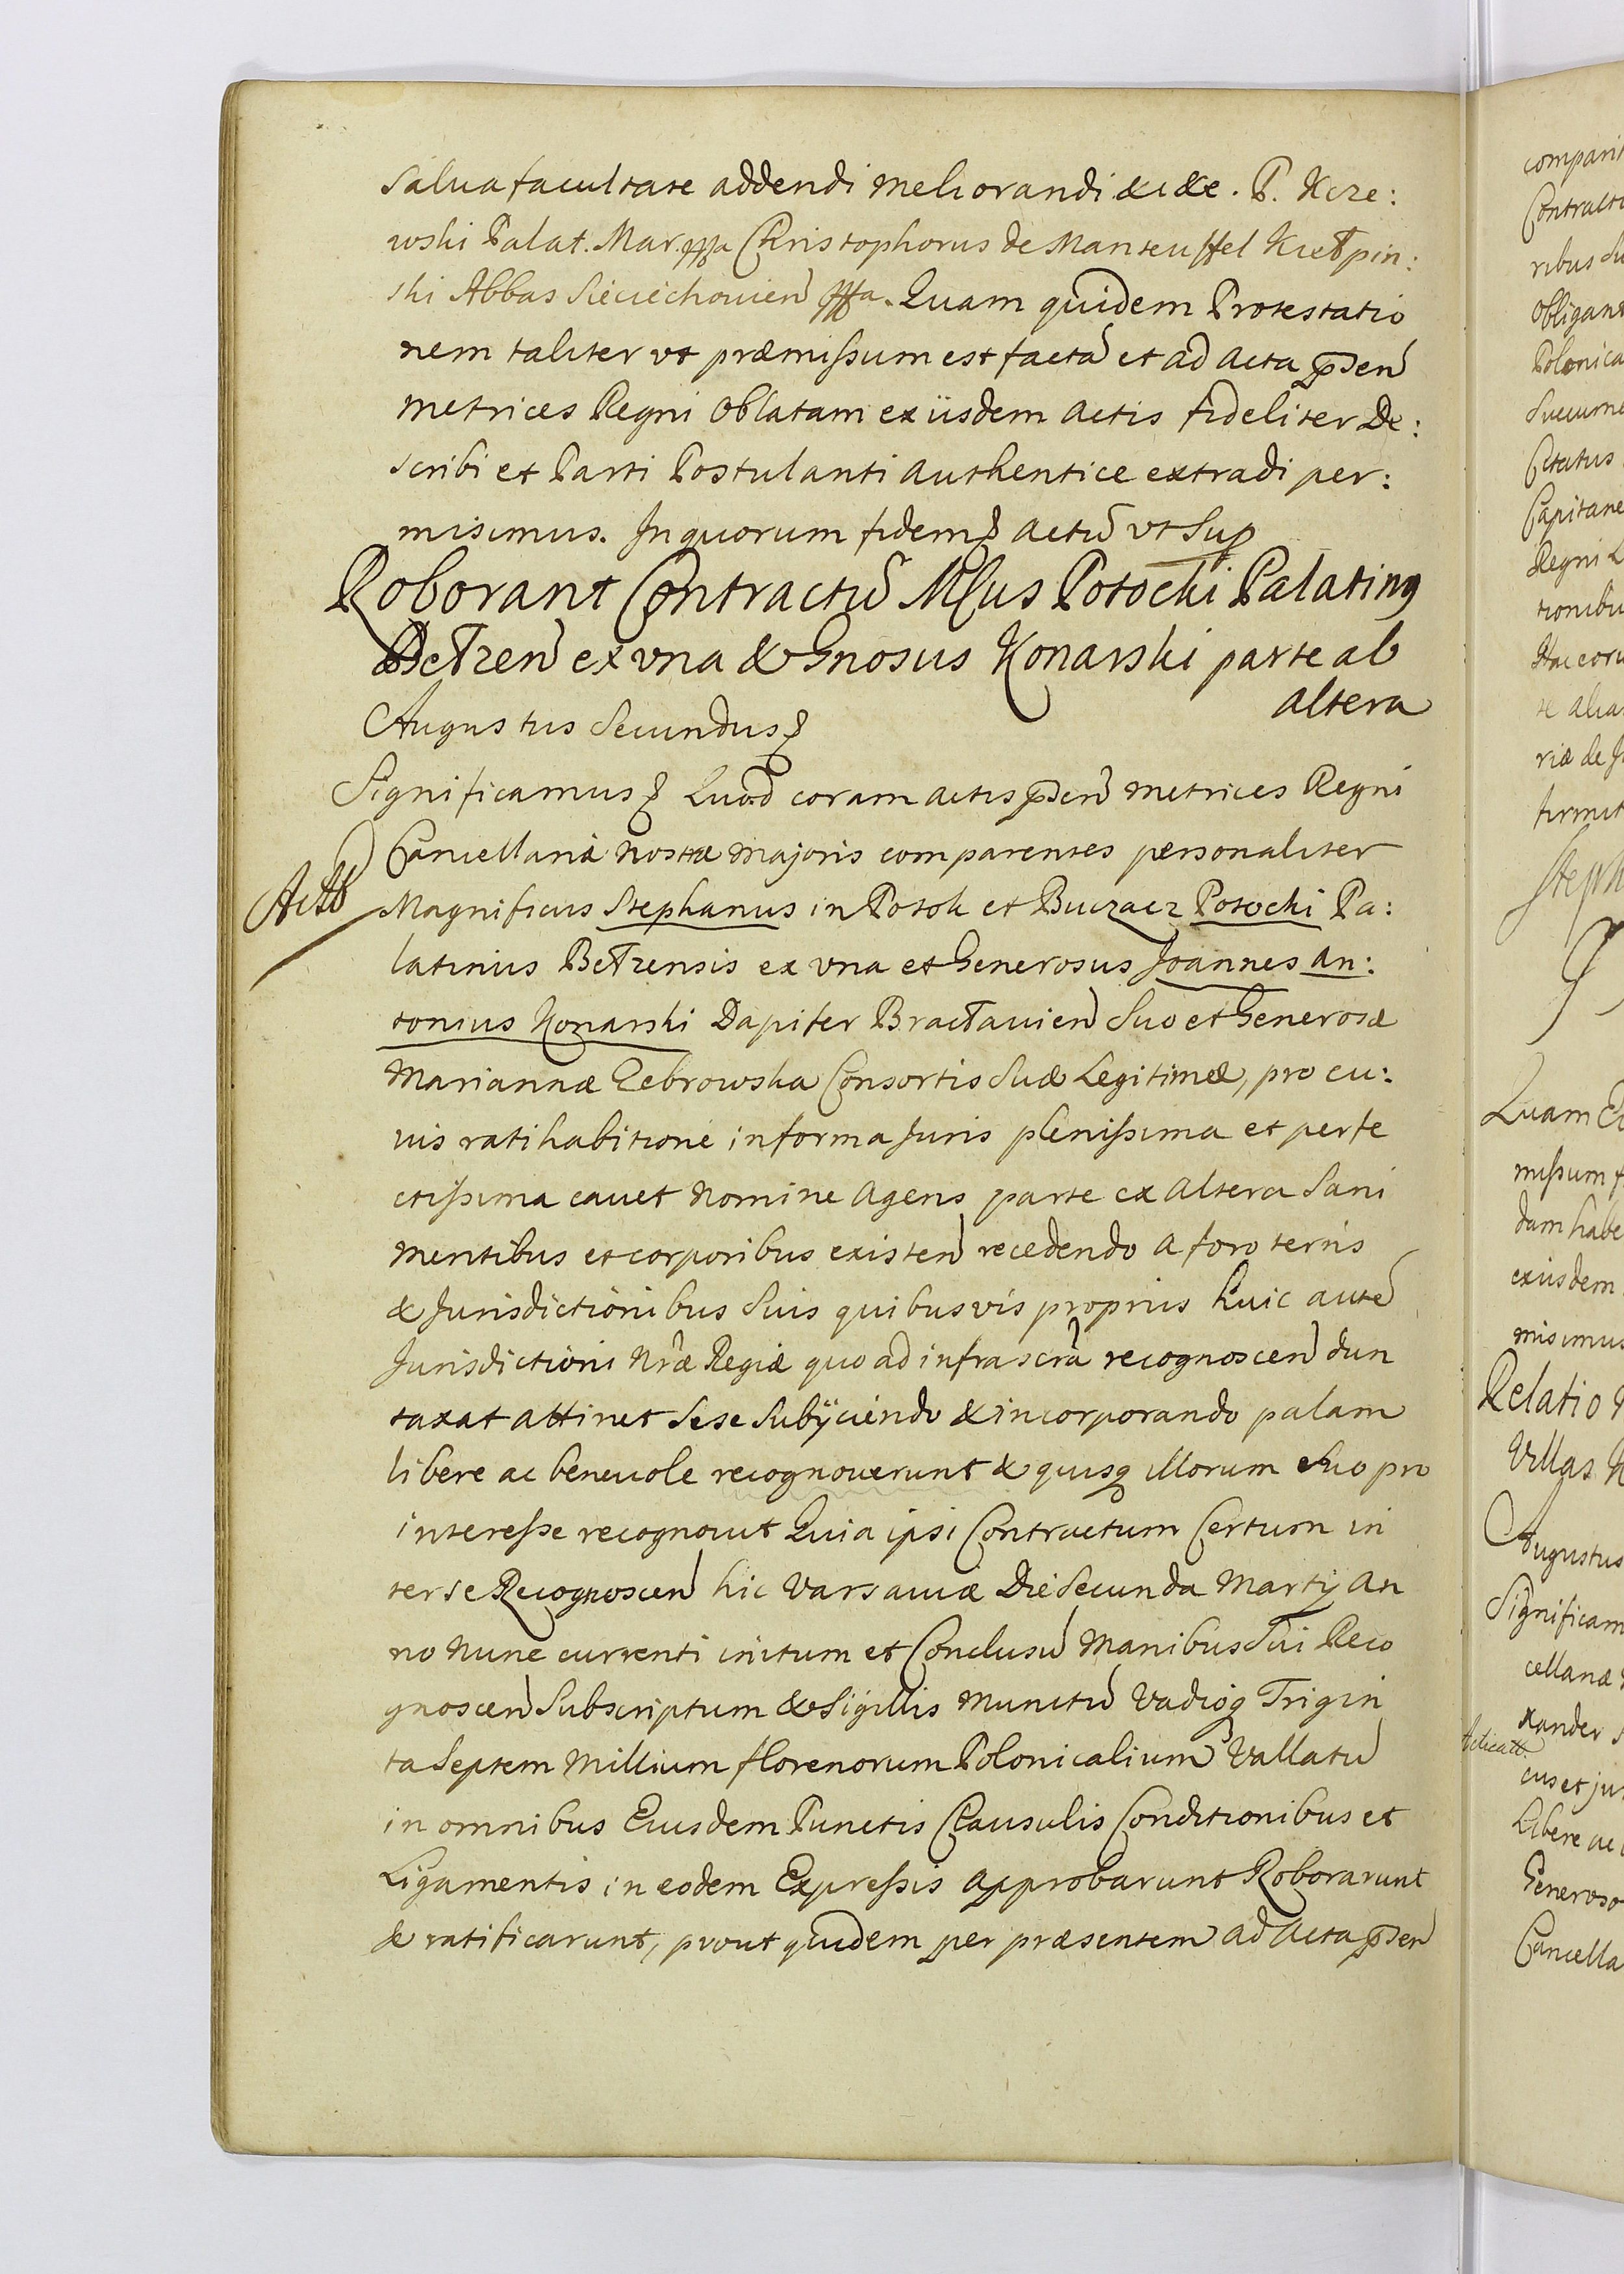 salva facultate addendi meliorandi &c &c. P. Kcze:
wski Palat. Mar. mppa Christophorus de Manteuffel Kiełpin:
ski Abbas Sieciechovien̄ mppa. Quam quidem Protestatio
nem taliter vt præmissum est factā et ad acta p̄sen̄
Metrices Regni Oblatam ex iisdem Actis fideliter De:
scribi et Parti Postulanti authentice extradi per:
misimus. In quorum fidem Actū vt Sup
Roborant Contractū Mfcus Potocki Palatinꝰ
Bełzen̄ ex vna & Gnosus Konarski parte ab
altera
Augustus Secundus
Significamus Quod coram actis p̄sen̄ Metrices Regni
Cancellariæ Nostræ Majoris comparentes personaliter
Magnificus Stephanus in Potok et Buczacz Potocki Pa:
latinus Bełzensis ex vna et Generosus Joannes An:
tonius Konarski Dapifer Bracłavien̄ Suo et Generosæ
Mariannæ Zebrowska Consortis Suæ Legitimæ, pro cu:
ius ratihabitione in forma Juris plenissima et perfe
ctissima cavet Nomine Agens parte ex Altera Sani
Mentibus et corporibus existen̄ recedendo a foro terris
& Jurisdictionibus Suis quibusvis propriis huic autē
Jurisdictioni Nræ Regiæ quo ad infrascrā recognoscen̄ dun
taxat attinet Sese Subÿciendo & incorporando palam
libere ac benevole recognoverunt & quisqꝫ illorum Suo pro
interesse recognovit Quia ipsi Contractum Certum in
ter se Recognoscen̄ hic Varsaviæ Die Secunda Martÿ An
no Nunc currenti initum et Conclusū Manibus Sui Reco
gnoscen̄ Subscriptum & Sigillis Munitū Vadioqꝫ Trigin
ta Septem Millium florenorum Polonicalium Vallatū
in omnibus Eiusdem Punctis Clausulis Conditionibus et
Ligamentis in eodem Expressis Approbarunt Roborarunt
& ratificarunt, prout quidem per præsentem ad Acta p̄sen̄
comparit
Contractu
ribus su
Obligant
Polonica
Succume
Citatus
Capitane
Regni
tionibu
Hac coru
te alia
riæ de J
firmit
Steph
Quam
missum f
dam habe
ex iisdem
misimus
Relatio
Villas
Augustus
Significam
cellariæ
xander
cus et ju
Libere ac
Generoso
Cancella